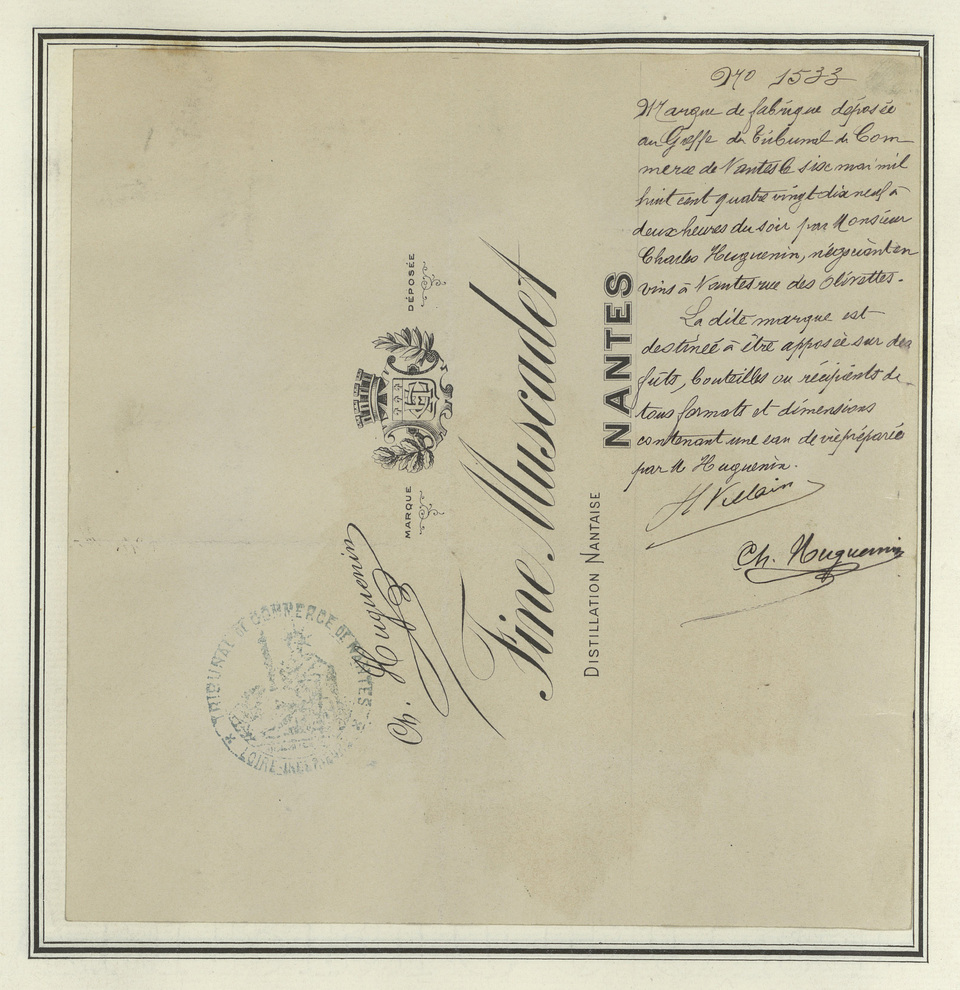 No 1533
Marque de fabrique déposée
au Greffe du Tribunal de Com
merce de Nantes le six mai mil
huit cent quatre vingt dix neuf à
deux heures du soir par Monsieur
Charles Huguenin, négociant en
vins à Nantes rue des Olivettes.
La dite marque est
destinée à être apposée sur des
fûts, bouteilles ou récipients de
tous formats et dimensions
contenant une eau de vie préparée
par M Huguenin.
H Villain
Ch. Huguenin
MARQUE DÉPOSÉE
Fine Muscadet
DISTILLATION NANTAISE
NANTES
Ch. Huguenin
TRIBUNAL DE COMMERCE DE NANTES
LOIRE-INFRE